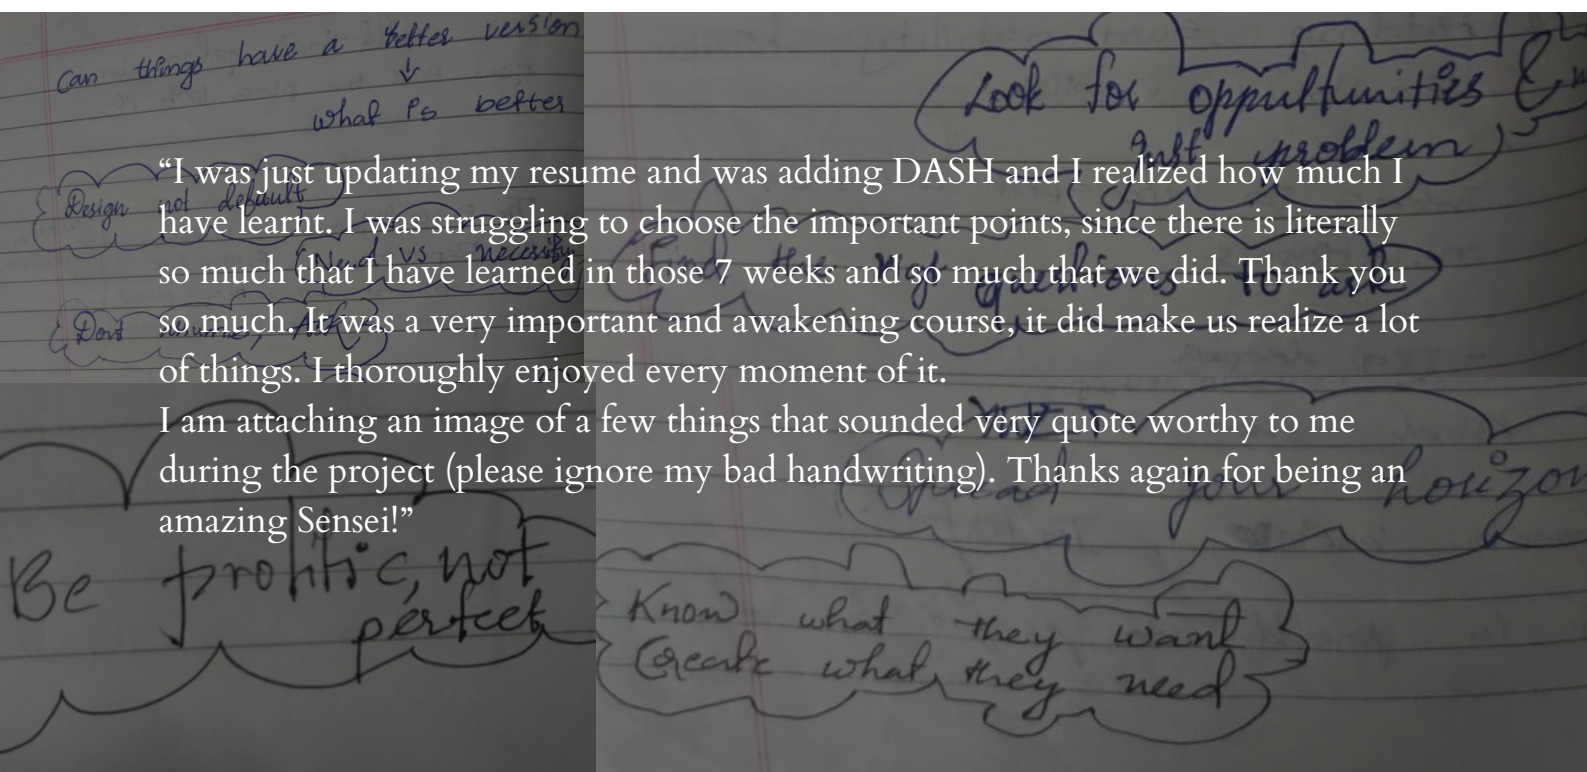 Can things have a better version
↓
what is better
Look for oppultunities &
just problem
Design not default
Need vs necessity
Find the questions to ask
Dont assume, Ask
“I was just updating my resume and was adding DASH and I realized how much I
have learnt. I was struggling to choose the important points, since there is literally
so much that I have learned in those 7 weeks and so much that we did. Thank you
so much. It was a very important and awakening course, it did make us realize a lot
of things. I thoroughly enjoyed every moment of it.
I am attaching an image of a few things that sounded very quote worthy to me
during the project (please ignore my bad handwriting). Thanks again for being an
amazing Sensei!”
your horizon
Be prolific, not
perfect
Know what they want
Create what they need